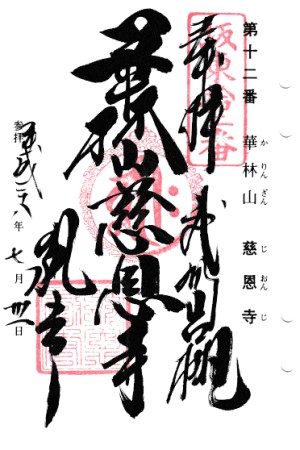 第十二番 華林山 慈恩寺
かりんざん じおんじ
坂東拾二番
奉拝 武州岩槻
華林山慈恩寺
参拝 平成二八年七月卅一日